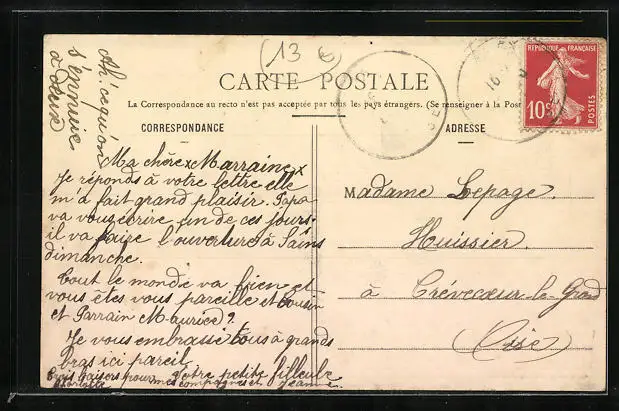 (13 €)
CARTE POSTALE
La Correspondance au recto n'est pas acceptée par tous les pays étrangers. (Se renseigner à la Post
CORRESPONDANCE
ADRESSE
RÉPUBLIQUE FRANÇAISE
10c
POSTES
Ah! ce qu'on
s'ennuie
à deux
Ma chère Marraine
Je réponds à votre lettre elle
m'a fait grand plaisir. Papa
va vous écrire un de ces jours
il va faire l'ouverture à Sains
dimanche.
Tout le monde va bien et
vous êtes vous pareille et cousin
et Parrain Maurice?
Je vous embrasse tous à grands
bras ici pareil
Votre petite filleule
Trois baisers pour mes compagnes et Jeanne.
Madame Lepage.
Huissier.
à Crévecœur-le-Grand
(Oise)